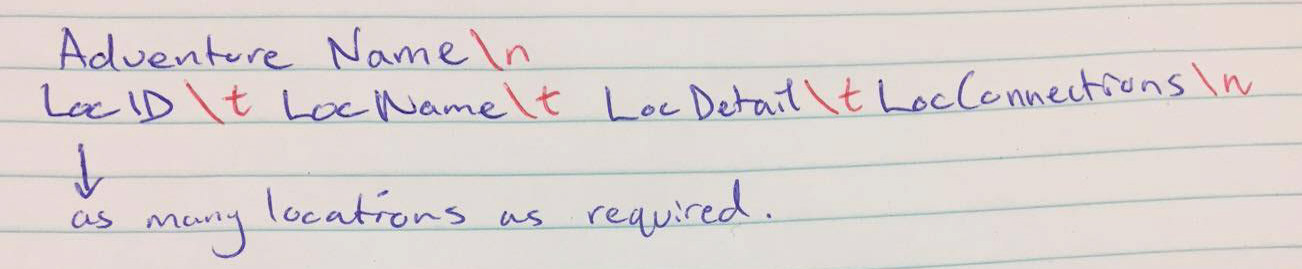 Adventure Name\n
LocID\t LocName\t LocDetail\t LocConnections\n
as many locations as required.